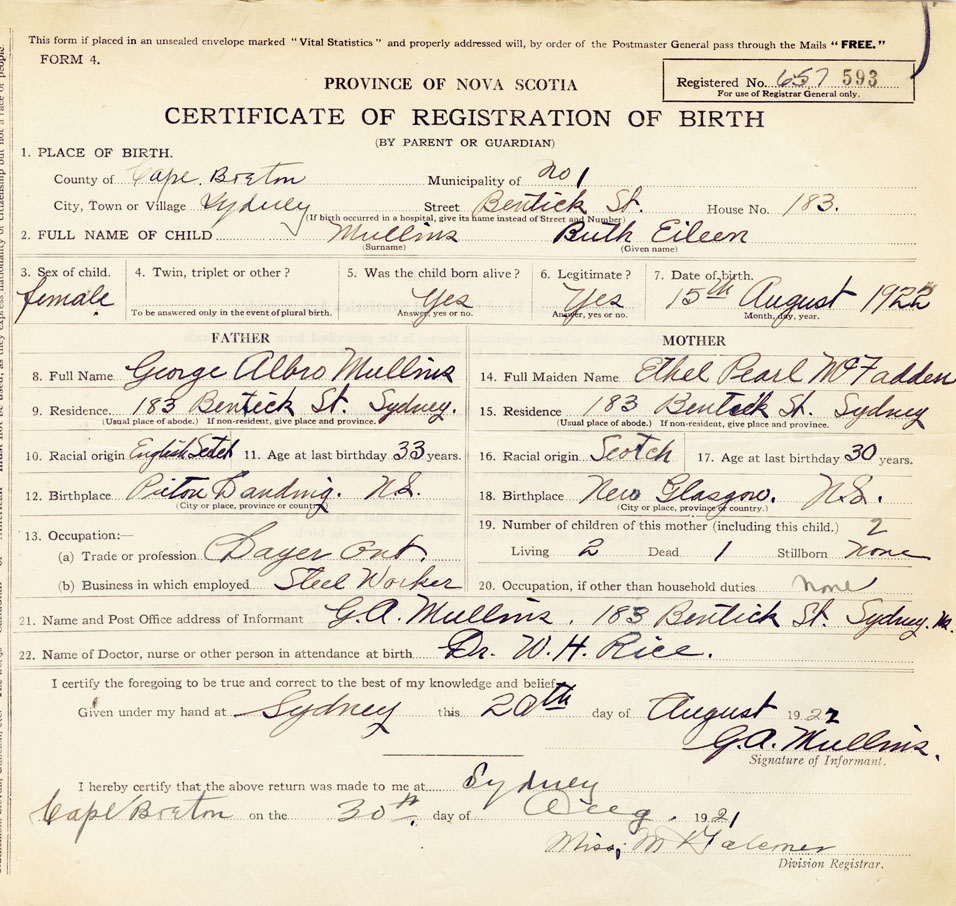 This form if placed in an unsealed envelope marked "Vital Statistics" and properly addressed will, by order of the Postmaster General pass through the Mails "FREE."
FORM 4.
PROVINCE OF NOVA SCOTIA
Registered No. 657 593
For use of Registrar General only.
CERTIFICATE OF REGISTRATION OF BIRTH
(BY PARENT OR GUARDIAN)
1. PLACE OF BIRTH.
County of Cape Breton Municipality of No 1
City, Town or Village Sydney Street Bentick St. House No. 183.
(If birth occurred in a hospital, give its name instead of Street and Number)
2. FULL NAME OF CHILD Mullins Ruth Eileen
(Surname) (Given name)
3. Sex of child. 4. Twin, triplet or other? 5. Was the child born alive? 6. Legitimate? 7. Date of birth.
female Yes Yes 15th August 1922
To be answered only in the event of plural birth. Answer, yes or no. Answer, yes or no. Month, day, year.
FATHER MOTHER
8. Full Name George Albro Mullins 14. Full Maiden Name Ethel Pearl McFadden
9. Residence 183 Bentick St. Sydney. 15. Residence 183 Bentick St. Sydney
(Usual place of abode.) If non-resident, give place and province. (Usual place of abode.) If non-resident, give place and province.
10. Racial origin English 11. Age at last birthday 33 years. 16. Racial origin Scotch 17. Age at last birthday 30 years.
12. Birthplace Picton Landing. N.S. 18. Birthplace New Glasgow. N.S.
(City or place, province or country.) (City or place, province or country.)
19. Number of children of this mother (including this child.) 2
13. Occupation:—
(a) Trade or profession Living 2 Dead 1 Stillborn none
(b) Business in which employed Steel Worker 20. Occupation, if other than household duties none
21. Name and Post Office address of Informant G.A. Mullins, 183 Bentick St. Sydney. N.S.
22. Name of Doctor, nurse or other person in attendance at birth Dr. W. H. Rice.
I certify the foregoing to be true and correct to the best of my knowledge and belief.
Given under my hand at Sydney this 20th day of August 1922
G.A. Mullins.
Signature of Informant.
I hereby certify that the above return was made to me at Sydney
Cape Breton on the 30th. day of Aug. 1921
Miss, M
Division Registrar.